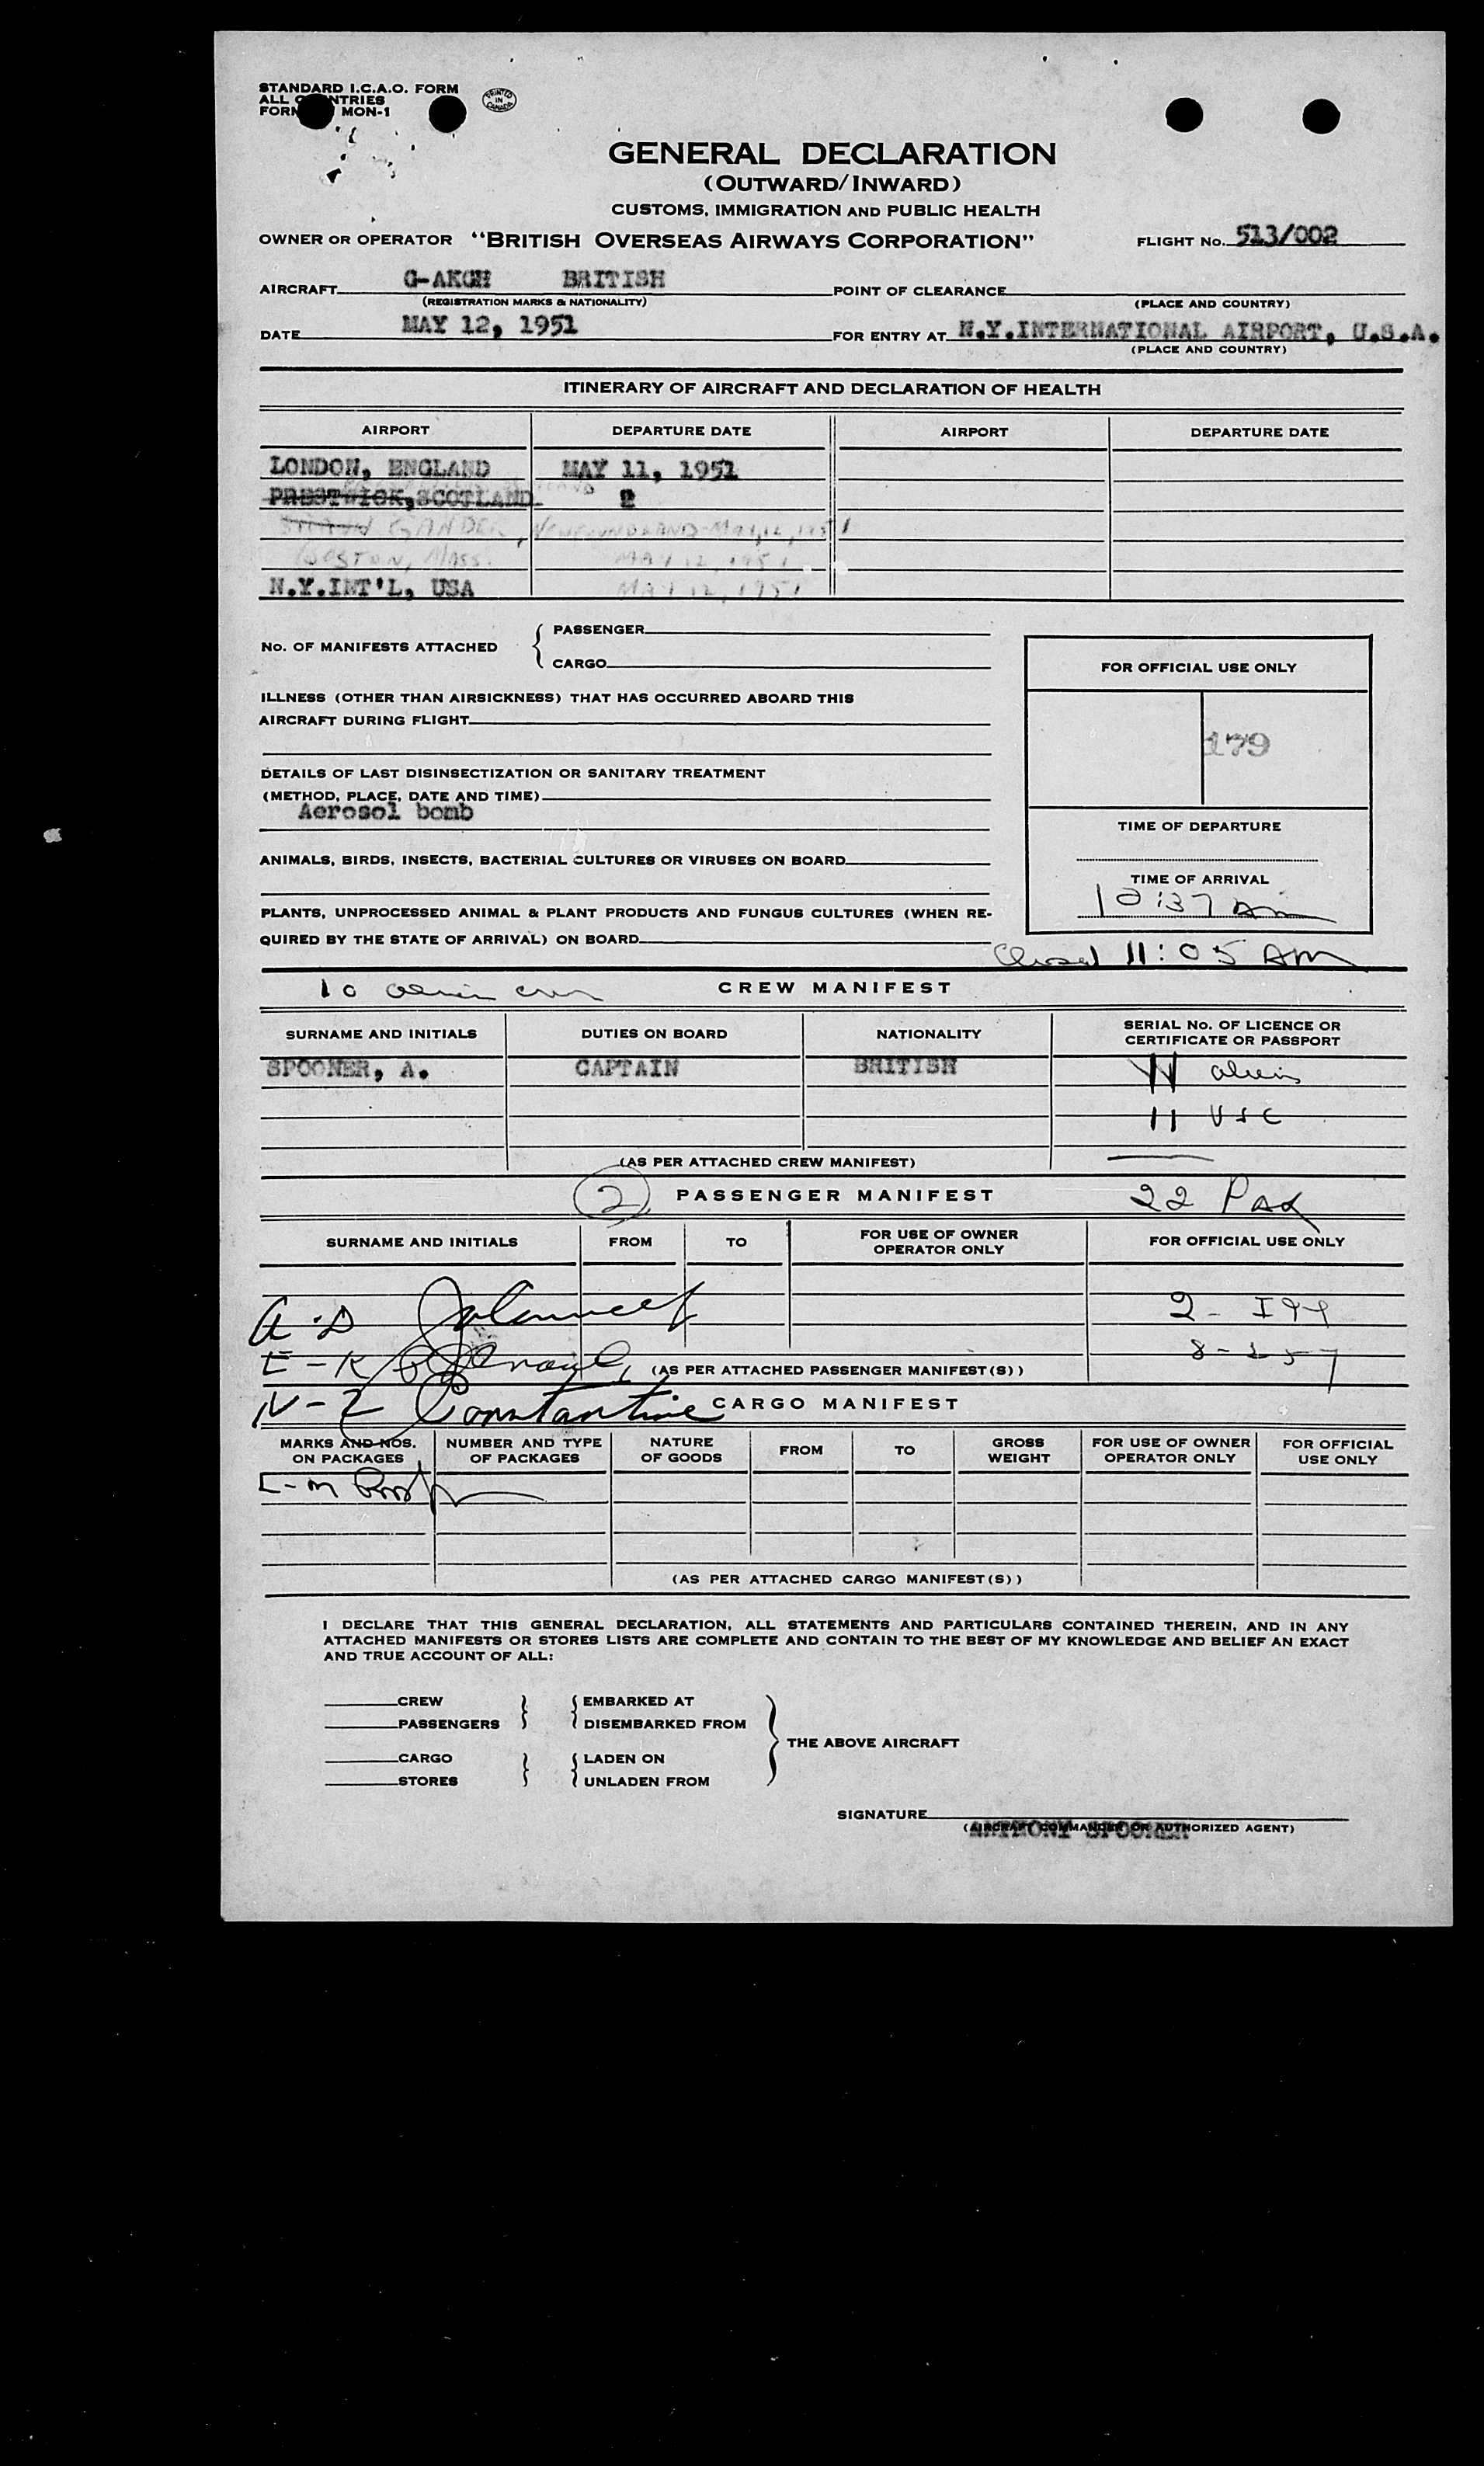 STANDARD I.C.A.O. FORM
ALL COUNTRIES
FORM MON-1
PRINTED IN CANADA
GENERAL DECLARATION
(OUTWARD/INWARD)
CUSTOMS, IMMIGRATION AND PUBLIC HEALTH
OWNER OR OPERATOR "BRITISH OVERSEAS AIRWAYS CORPORATION" FLIGHT No. 513/002
AIRCRAFT G-AKGH BRITISH POINT OF CLEARANCE
(REGISTRATION MARKS & NATIONALITY) (PLACE AND COUNTRY)
DATE MAY 12, 1951 FOR ENTRY AT N.Y.INTERNATIONAL AIRPORT, U.S.A.
(PLACE AND COUNTRY)
ITINERARY OF AIRCRAFT AND DECLARATION OF HEALTH
AIRPORT DEPARTURE DATE AIRPORT DEPARTURE DATE
LONDON, ENGLAND MAY 11, 1951
PRESTWICK, SCOTLAND
GANDER, NEWFOUNDLAND MAY, 12, 1951
BOSTON, MASS. MAY 12, 1951
N.Y.INT'L, USA MAY 12, 1951
No. OF MANIFESTS ATTACHED { PASSENGER
CARGO
FOR OFFICIAL USE ONLY
ILLNESS (OTHER THAN AIRSICKNESS) THAT HAS OCCURRED ABOARD THIS
AIRCRAFT DURING FLIGHT
179
DETAILS OF LAST DISINSECTIZATION OR SANITARY TREATMENT
(METHOD, PLACE, DATE AND TIME)
Aerosol bomb
TIME OF DEPARTURE
ANIMALS, BIRDS, INSECTS, BACTERIAL CULTURES OR VIRUSES ON BOARD
TIME OF ARRIVAL
10:37 AM
PLANTS, UNPROCESSED ANIMAL & PLANT PRODUCTS AND FUNGUS CULTURES (WHEN RE-
QUIRED BY THE STATE OF ARRIVAL) ON BOARD
Closed 11:05 AM
10 alien crew CREW MANIFEST
SURNAME AND INITIALS DUTIES ON BOARD NATIONALITY SERIAL No. OF LICENCE OR
CERTIFICATE OR PASSPORT
SPOONER, A. CAPTAIN BRITISH 11 aliens
11 USC
(AS PER ATTACHED CREW MANIFEST)
2 PASSENGER MANIFEST 22 Pax
SURNAME AND INITIALS FROM TO FOR USE OF OWNER
OPERATOR ONLY FOR OFFICIAL USE ONLY
A-D
2-
E-K
8-
(AS PER ATTACHED PASSENGER MANIFEST(S))
N-Z Constantine CARGO MANIFEST
MARKS AND NOS.
ON PACKAGES NUMBER AND TYPE
OF PACKAGES NATURE
OF GOODS FROM TO GROSS
WEIGHT FOR USE OF OWNER
OPERATOR ONLY FOR OFFICIAL
USE ONLY
L-M
(AS PER ATTACHED CARGO MANIFEST(S))
I DECLARE THAT THIS GENERAL DECLARATION, ALL STATEMENTS AND PARTICULARS CONTAINED THEREIN, AND IN ANY
ATTACHED MANIFESTS OR STORES LISTS ARE COMPLETE AND CONTAIN TO THE BEST OF MY KNOWLEDGE AND BELIEF AN EXACT
AND TRUE ACCOUNT OF ALL:
CREW } { EMBARKED AT
PASSENGERS DISEMBARKED FROM
} THE ABOVE AIRCRAFT
CARGO } { LADEN ON
STORES UNLADEN FROM
SIGNATURE
(AIRCRAFT COMMANDER OR AUTHORIZED AGENT)
ANTHONY SPOONER